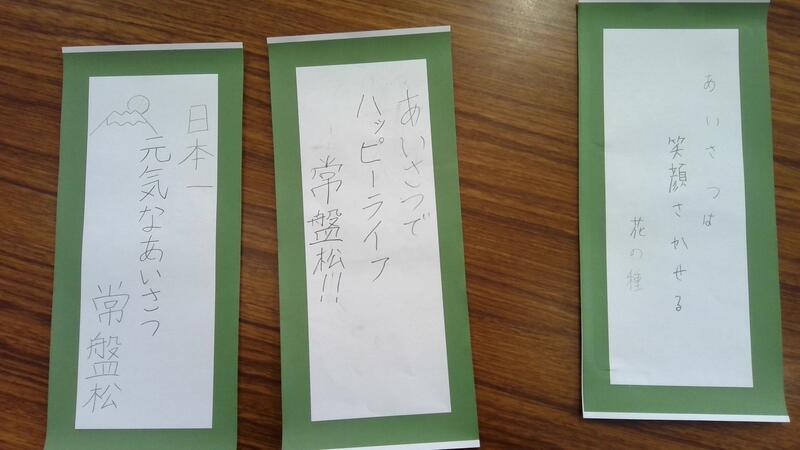 日本一
元気なあいさつ
常盤松
あいさつで
ハッピーライフ
常盤松!!
あいさつは
笑顔さかせる
花の種